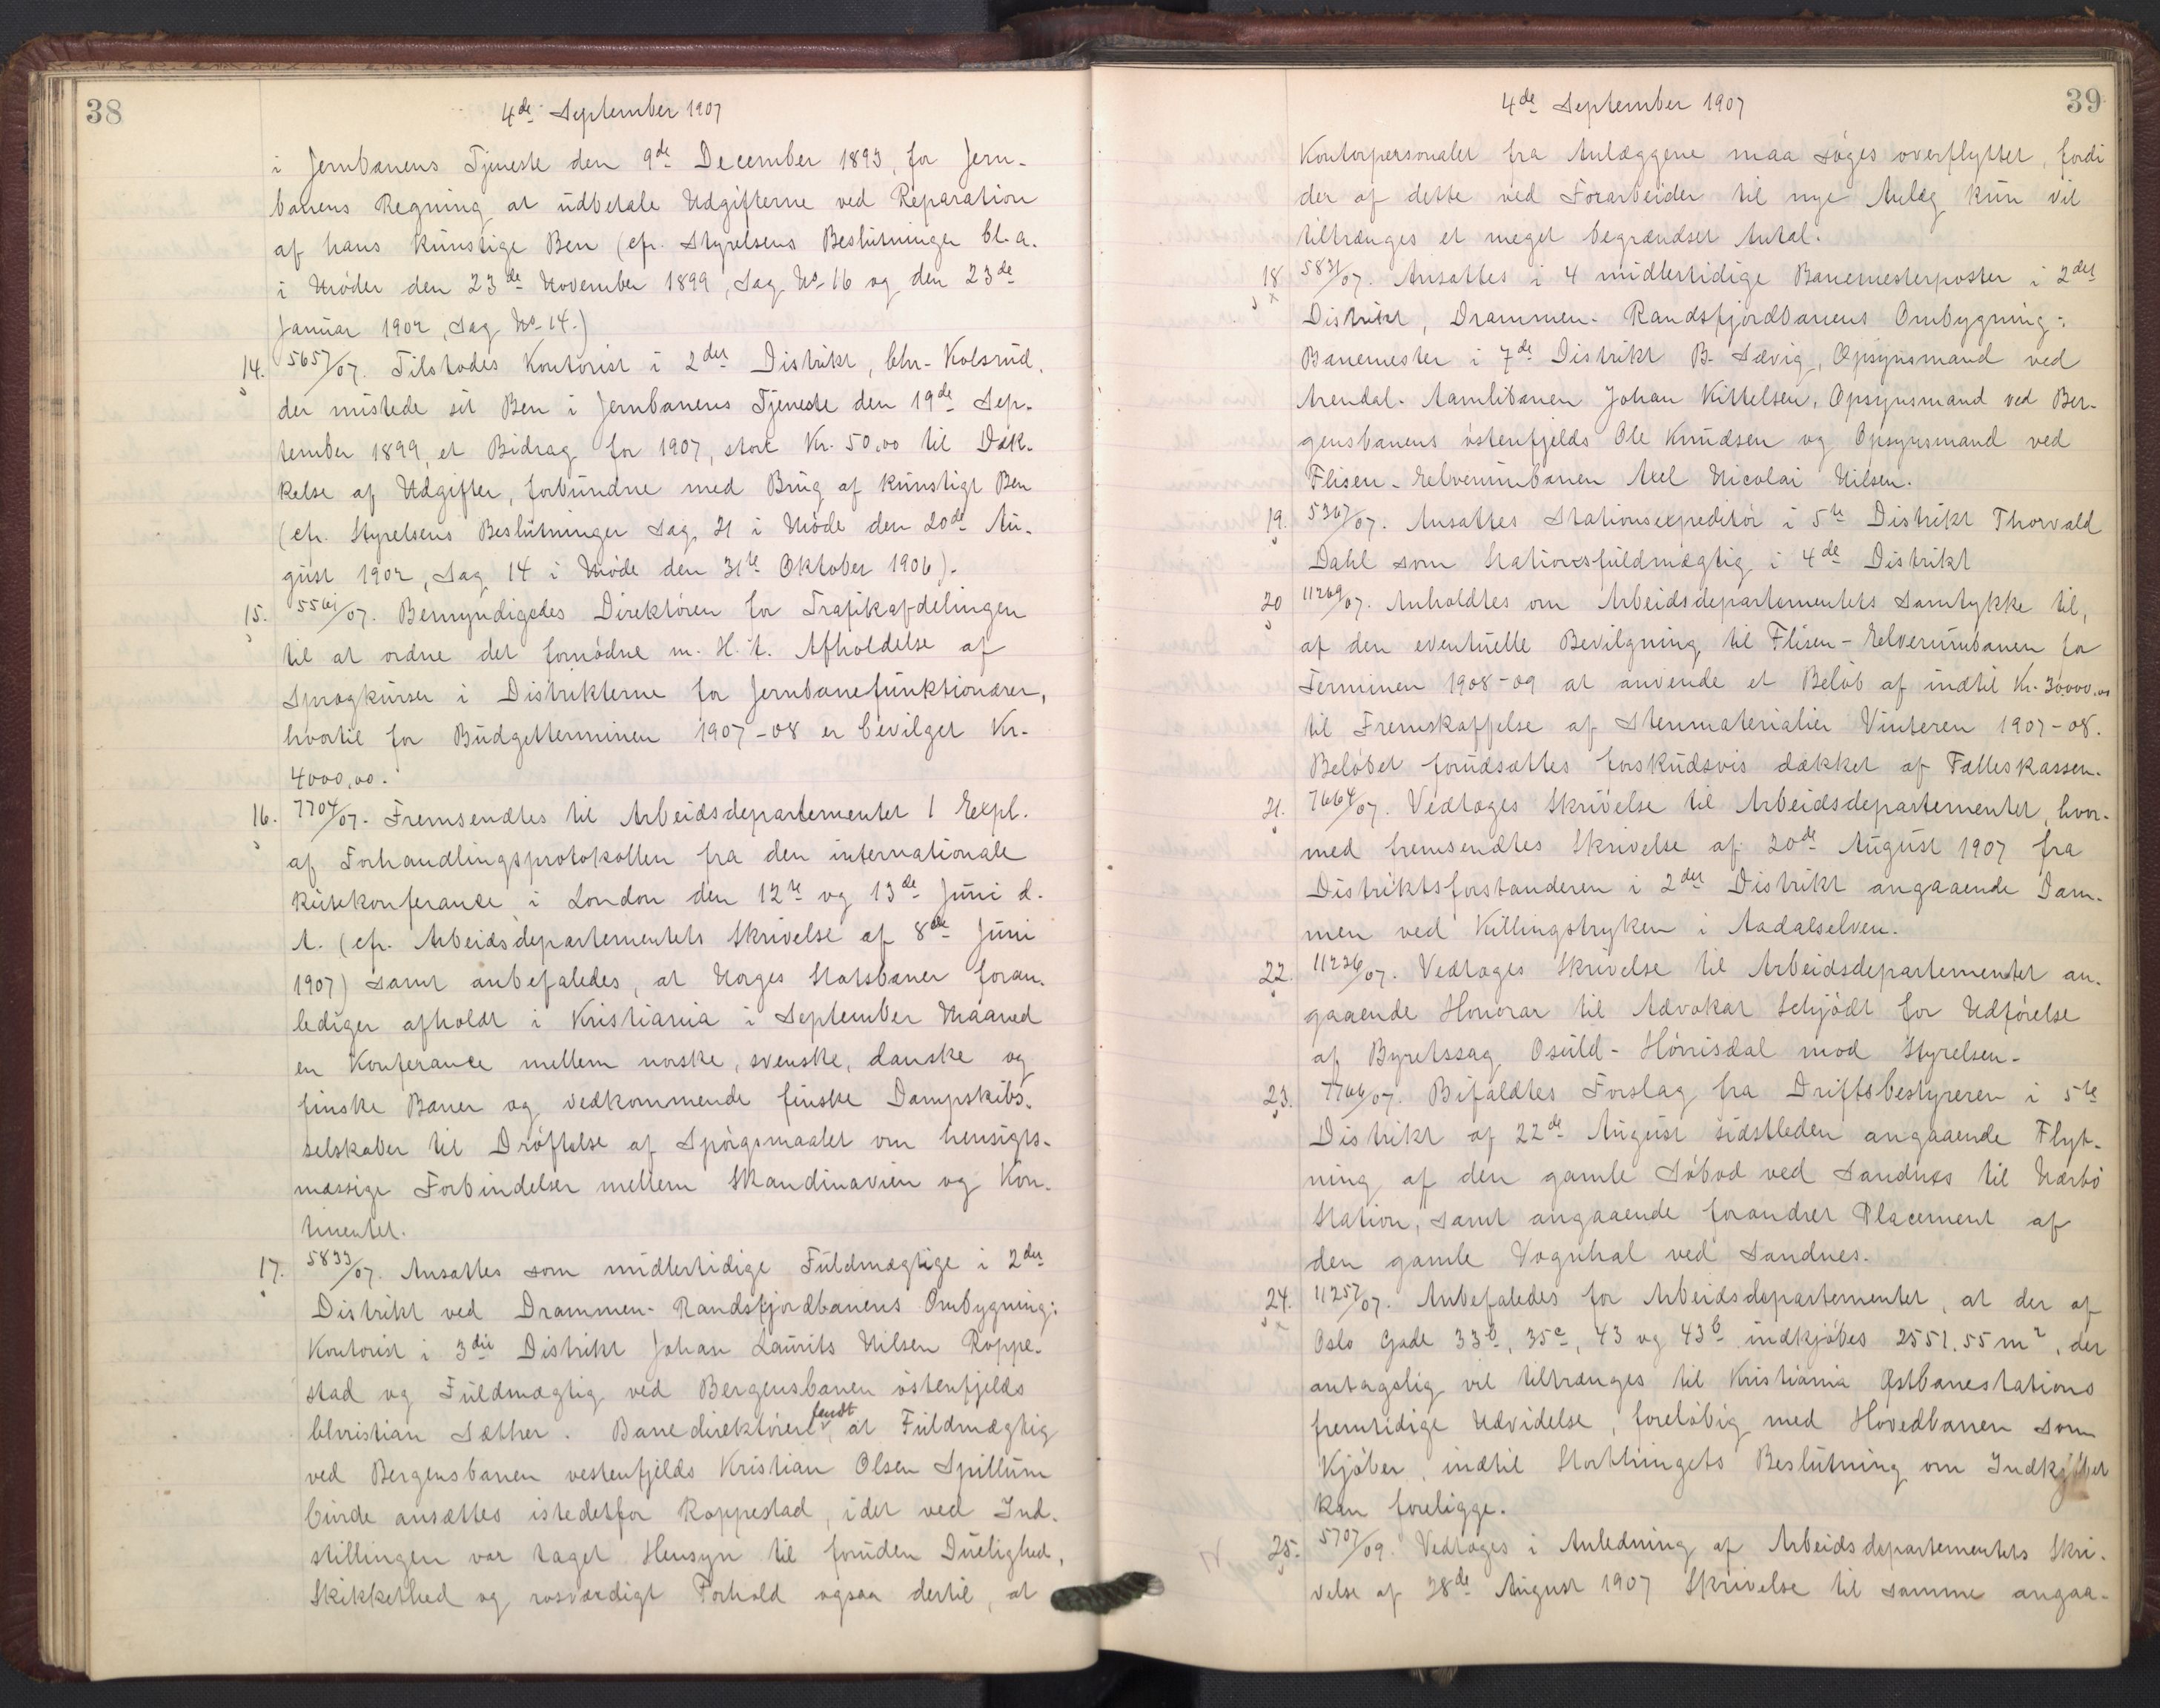 38
4de September 1907
i Jernbanens Tjeneste den 9de December 1893, for Jern-
banens Regning at udbetale Udgifterne ved Reparation
af hans kunstige Ben (cfr. Styrelsens Beslutninger bl.a.
i Møder den 23de November 1899, Sag No 16 og den 23de
Januar 1902, Sag No 14.)
14. 5657/07. Tilstodes Kontorist i 2det Distrikt, Chr. Kolsrud,
der mistede sit Ben i Jernbanens Tjeneste den 19de Sep-
tember 1899, et Bidrag for 1907, stort Kr. 50,00 til Dæk-
kelse af Udgifter, forbundne med Brug af kunstigt Ben
(cfr. Styrelsens Beslutninger Sag 21 i Møde den 20de Au-
gust 1902, Sag 14 i Møde den 31te Oktober 1906).
15. 5561/07. Bemyndigedes Direktøren for Trafikafdelingen
til at ordne det fornødne m. H. t. Afholdelse af
Sprogkurser i Distrikterne for Jernbanefunktionærer,
hvortil for Budgetterminen 1907-08 er bevilget Kr.
4000,00.
16. 7704/07. Fremsendtes til Arbeidsdepartementet 1 Expl.
af Forhandlingsprotokollen fra den internationale
Rutekonferance i London den 12te og 13de Juni d.
A. (cfr. Arbeidsdepartementets Skrivelse af 8de Juni
1907) samt anbefaledes, at Norges Statsbaner foran-
lediger afholdt i Kristiania i September Maaned
en Konferance mellem norske, svenske, danske og
finske Baner og vedkommende finske Dampskibs-
selskaber til Drøftelse af Spørgsmaalet om hensigts-
mæssige Forbindelser mellem Skandinavien og Kon-
tinentet.
17. 5833/07. Ansattes som midlertidige Fuldmægtige i 2det
Distrikt ved Drammen-Randsfjordbanens Ombygning:
Kontorist i 3die Distrikt Johan Laurits Nilsen Roppe-
stad og Fuldmægtig ved Bergensbanen østenfjelds
Christian Sæther. Banedirektøren fandt, at Fuldmægtig
ved Bergensbanen vestenfjelds Kristian Olsen Spillum
burde ansættes istedetfor Roppestad, idet ved Ind-
stillingen var taget Hensyn til foruden Duelighed,
Skikkethed og rosværdigt Forhold ogsaa dertil, at
39
4de September 1907
Kontorpersonalet fra Anlæggene maa søges overflyttet, fordi
der af dette ved Forarbeider til nye Anlæg kun vil
tiltrænges et meget begrændset Antal.
18. 5831/07. Ansattes i 4 midlertidige Banemesterposter i 2det
Distrikt, Drammen-Randsfjordbanens Ombygning:
Banemester i 7de Distrikt B. Sævig, Opsynsmand ved
Arendal-Aamlibanen Johan Kittelsen, Opsynsmand ved Ber-
gensbanens østenfjelds Ole Knudsen og Opsynsmand ved
Flisen-Elverumbanen Axel Nicolai Nilsen.
19. 5367/07. Ansattes Stationsexpeditør i 5te Distrikt Thorvald
Dahl som Stationsfuldmægtig i 4de Distrikt
20 11269/07. Anholdtes om Arbeidsdepartementets Samtykke til,
af den eventuelle Bevilgning til Flisen-Elverumbanen for
Terminen 1908-09 at anvende et Beløb af indtil Kr. 30000.00
til Fremskaffelse af Stenmaterialier Vinteren 1907-08.
Beløbet forudsættes forskudsvis dækket af Fælleskassen.
21. 7664/07. Vedtoges Skrivelse til Arbeidsdepartementet, hvor-
med fremsendtes Skrivelse af 20de August 1907 fra
Distriktsforstanderen i 2det Distrikt angaaende Dam-
men ved Killingstryken i Aadalselven.
22. 11236/07. Vedtoges Skrivelse til Arbeidsdepartementet an-
gaaende Honorar til Advokat Schjødt for Udførelse
af Byretssag Osuld-Hørrisdal mod Styrelsen.
23. 7766/07. Bifaldtes Forslag fra Driftsbestyreren i 5te
Distrikt af 22de August sidstleden angaaende Flyt-
ning af den gamle Søbod ved Sandnes til Nærbø
Station, samt angaaende forandret Placement af
den gamle Vognhal ved Sandnes.
24. 11257/07. Anbefaledes for Arbeidsdepartementet, at der af
Oslo Gade 33b, 35c, 43 og 43b indkjøbes 2551.55 m2, der
antagelig vil tiltrænges til Kristiania Østbanestations
fremtidige Udvidelse, foreløbig med Hovedbanen som
Kjøber, indtil Storthingets Beslutning om Indkjøbet
kan foreligge.
25. 5707/09. Vedtoges i Anledning af Arbeidsdepartementets Skri-
velse af 28de August 1907 Skrivelse til samme angaa-